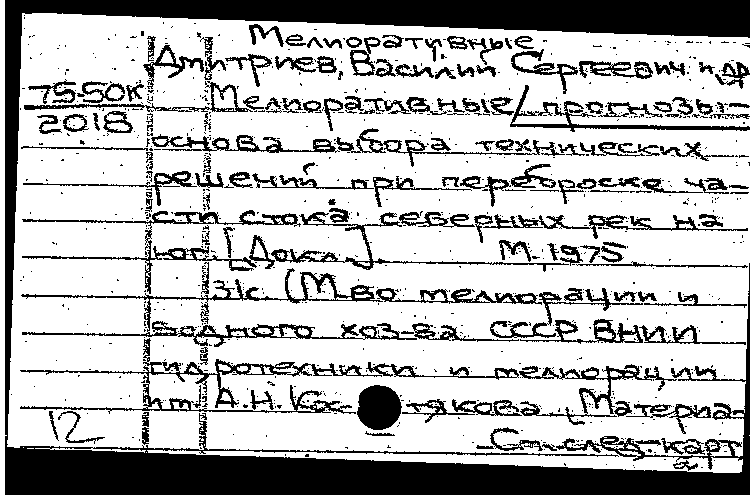 Мелиоративные
Дмитриев, Василий Сергеевич и др
75-50К
2018
Мелиоративные прогнозы -
основа выбора технических
решений при переброске ча-
сти стока северных рек на
юг. [Докл.]. М. 1975.
31с. (М-во мелиорации и
водного хоз-ва СССР. ВНИИ
гидротехники и мелиорации
им. А.Н. Кос-тякова. Материа-
12
См. след. карт.